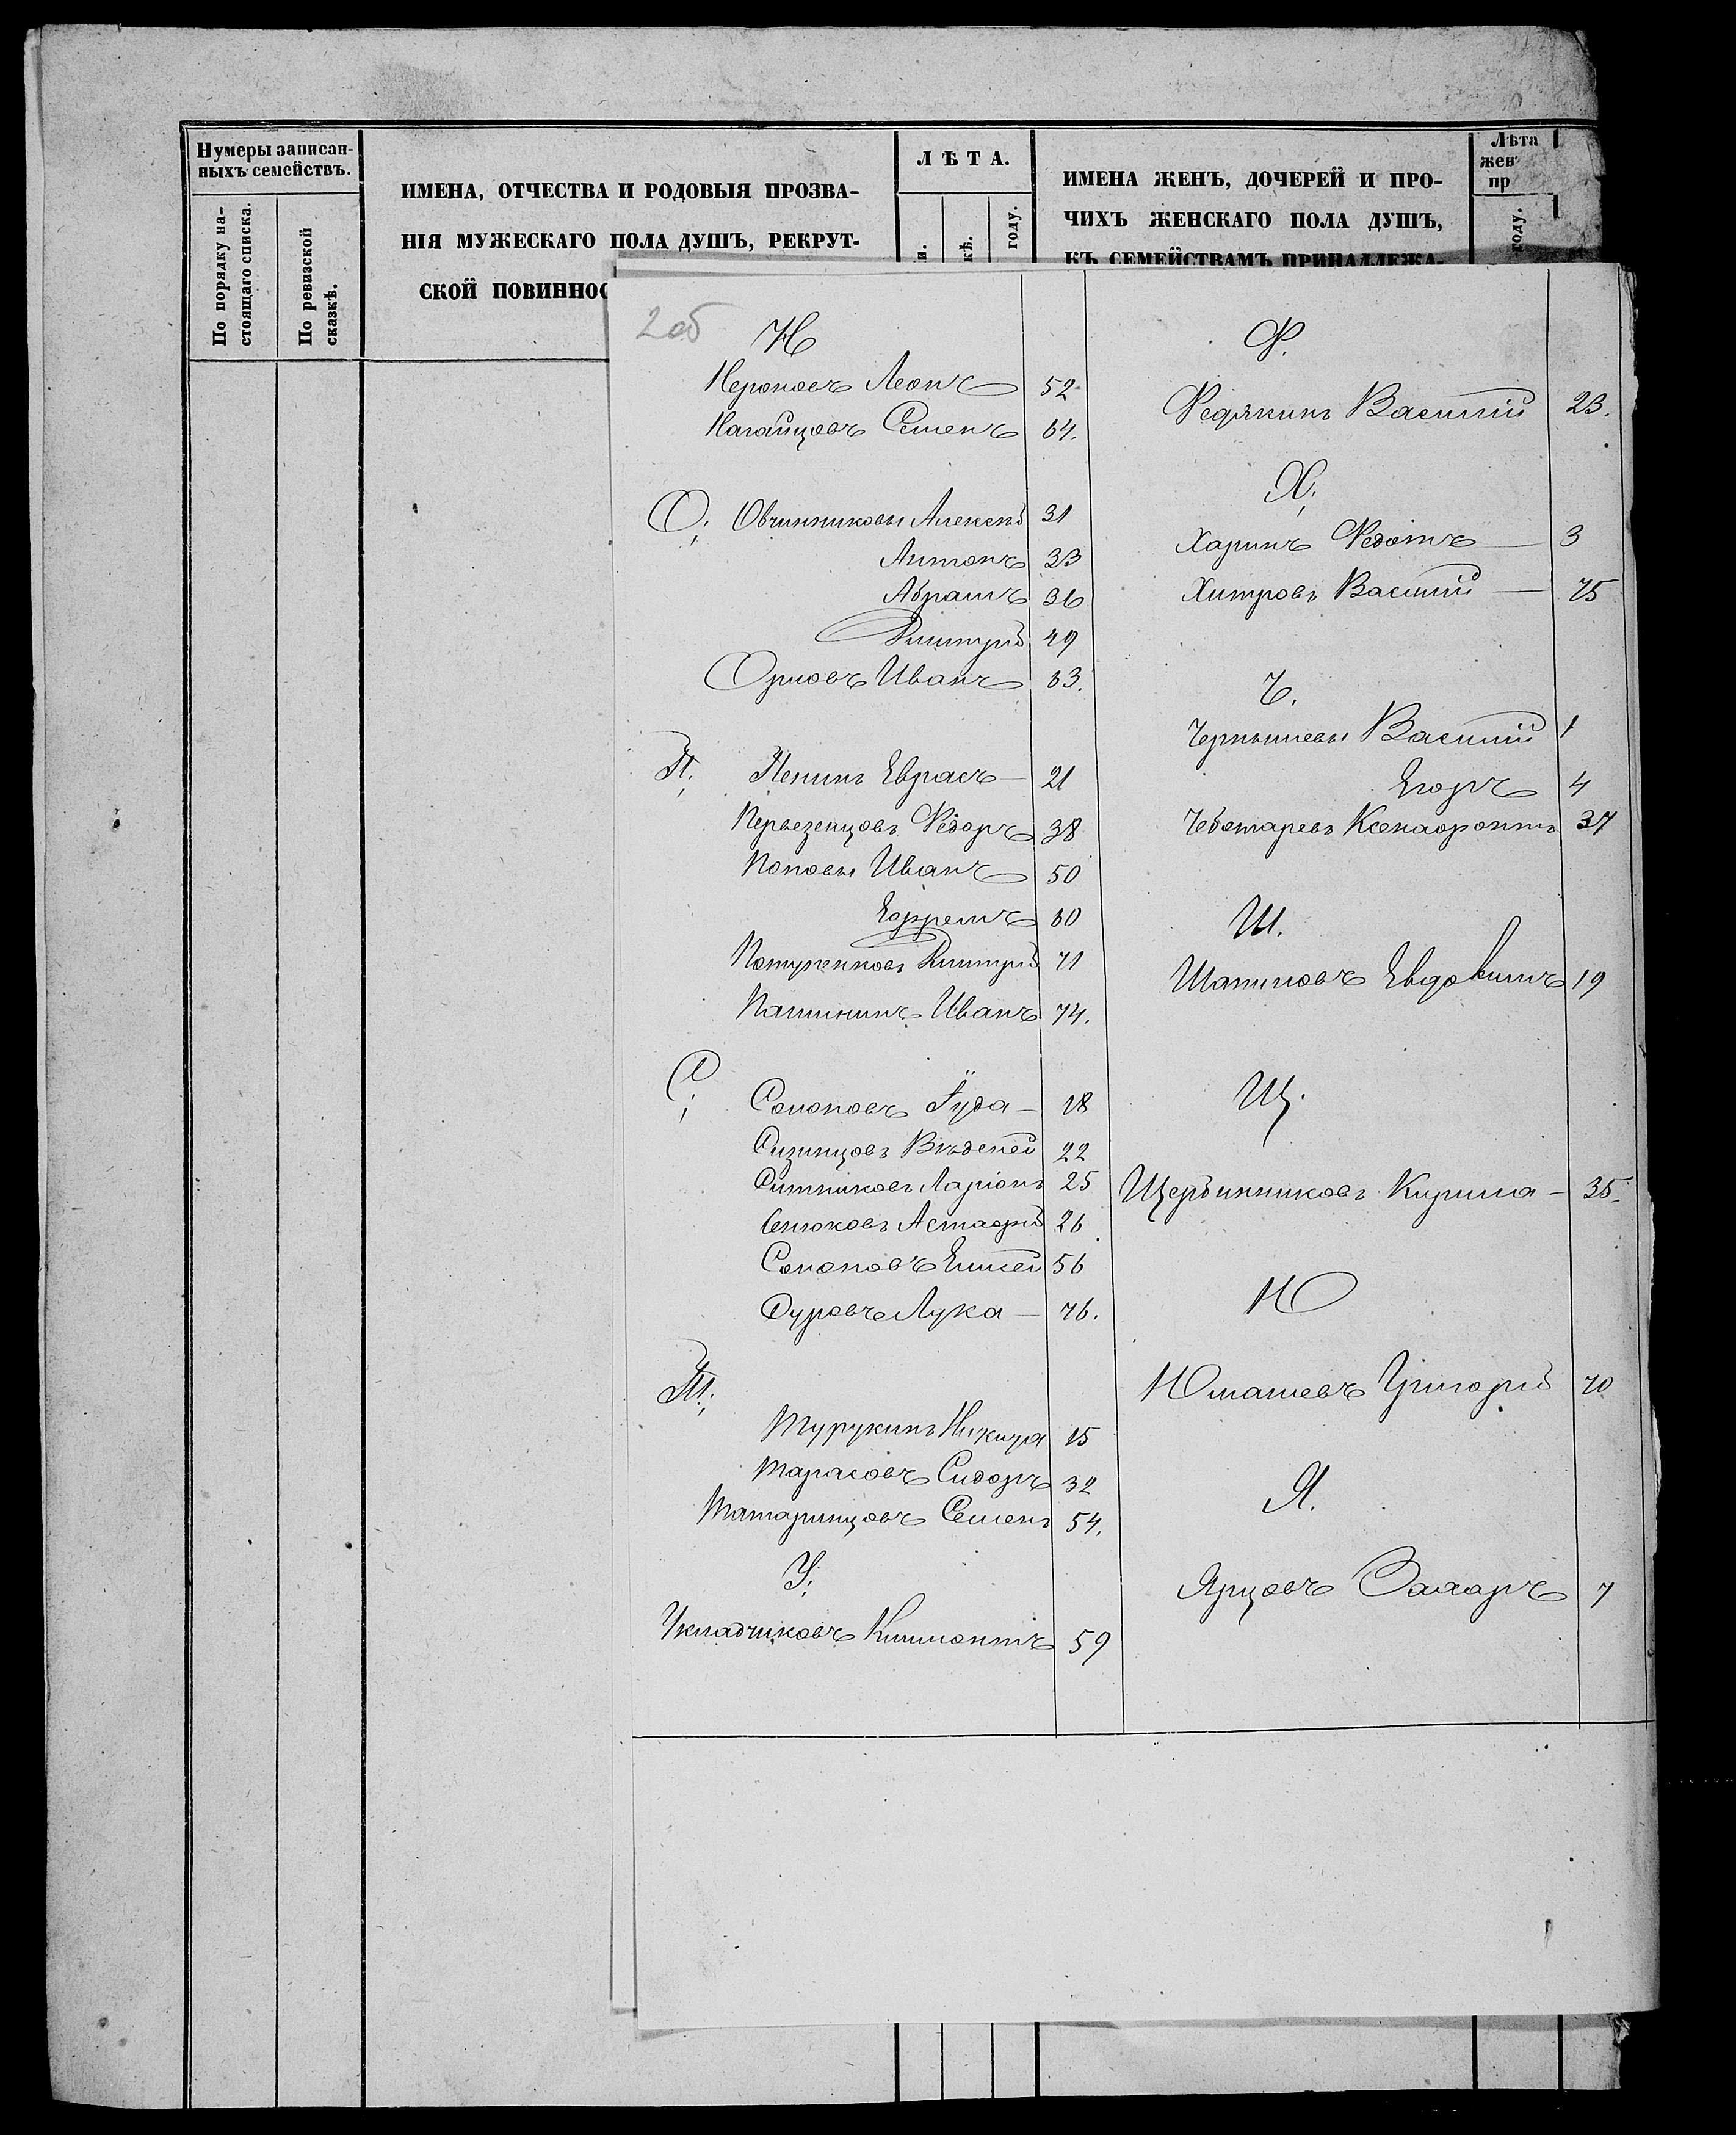 Нумеры записан-
ныхъ семействъ.
По порядку на-
стоящаго списка.
По ревизской
сказкѣ.
ИМЕНА, ОТЧЕСТВА И РОДОВЫЯ ПРОЗВА-
НІЯ МУЖЕСКАГО ПОЛА ДУШЪ, РЕКРУТ-
СКОЙ ПОВИННОС
ЛѢТА.
и.
кѣ.
году.
ИМЕНА ЖЕНЪ, ДОЧЕРЕЙ И ПРО-
ЧИХЪ ЖЕНСКАГО ПОЛА ДУШЪ,
КЪ СЕМЕЙСТВАМЪ ПРИНАДЛЕЖА-
Лѣта
жен
пр
году.
2об
Н
Нероновъ Леонъ 52
Нагайцовъ Семенъ 64.
О; Овчинниковы Алексѣй 31
Антонъ 33
Абрамъ 36
Дмитрій 49
Орловъ Иванъ 63.
П; Пенинъ Евграсъ — 21
Первезенцовъ Ѳедоръ 38
Поповы Иванъ 50
Ефремъ 60
Дмитрій 71
Пашининъ Иванъ 74.
С; Солоповъ Іуда — 18
Сизинцовъ 22
Ситниковъ Ларіонъ 25
Сенюковъ Астафій 26
Солоповъ Елисей 56
Суровъ Лука — 76.
Т;
Турукинъ Никита 15
Тарасовъ Сидоръ 32
Татаринцовъ Семенъ 54.
У;
Укладчиковъ Климонтъ 59
Ф.
Федякинъ Василій 23.
Х;
Харинъ Федотъ — 3
Хитровъ Василій — 75
Ч.
Чернышевы Василій 1
Егоръ 4
Чеботаревъ Ксенафонтъ 37
Ш.
Шапиловъ Евдокимъ 19
Щ.
Щербинниковъ Кирила — 35.
Ю
Юмашевъ Григорій 70
Я.
Ярцовъ Захаръ 7